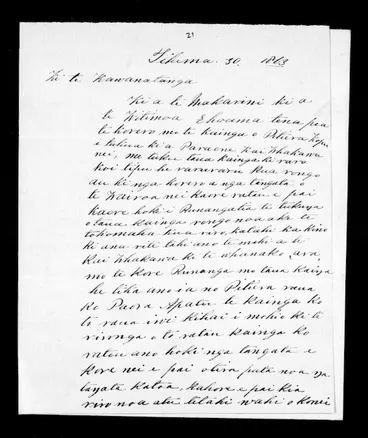 21
Tihema. 30. 1863
Ki te Kawanatanga
Ki a te Makarini ki a
te Kitimoa Ehoama tena pea
te korero mo te kainga o Pitiera Kopu
nei, i tukua ki a Paraone Kai Whakawa
nei, me tuku taua kainga ki raro
koi tipu he raruraru Kua rongo
au ki nga korero a nga tangata o
te Wairoa nei kaore ratou e pai
kaore hoki i Runangatia te tukunga
o taua kainga rongo noa ake te
tohomaha kua riro, katahi ka kino
ki ana rite tahi ano te mahi a te
Kai Whakawa ki te whanako, ara,
mo te kore Runanga mo taua kainga
he tika ano ia no Pitiera raua
ko Paora Apatu te kainga ko
to raua iwi kihai i mohio ki te
rironga o to ratou kainga ko
ratou ano hoki nga tangata e
kore nei e pai otira puta noa nga
tangata katoa, Kahore e pai kia
riro noa atu tetahi wahi o konei